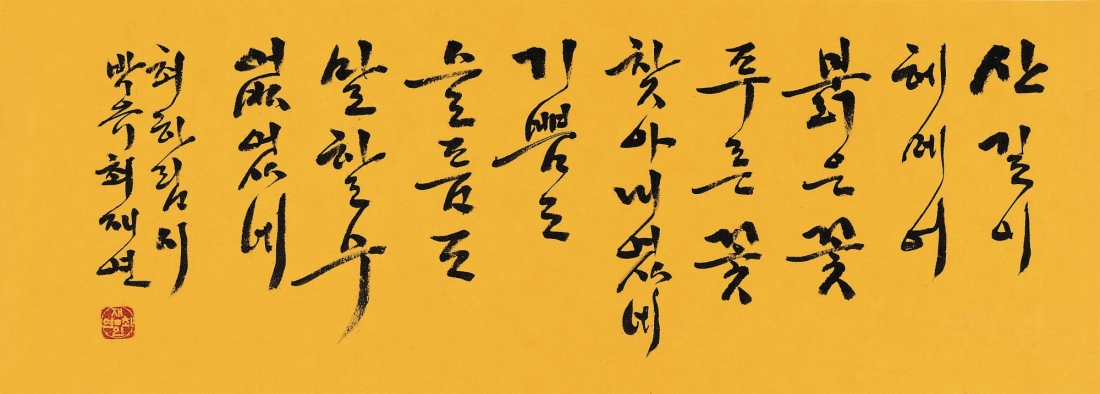 산길이
붉은꽃
푸른꽃
찾아내었네
기쁨도
슬픔도
말할수
없었네
최하림시
최재연